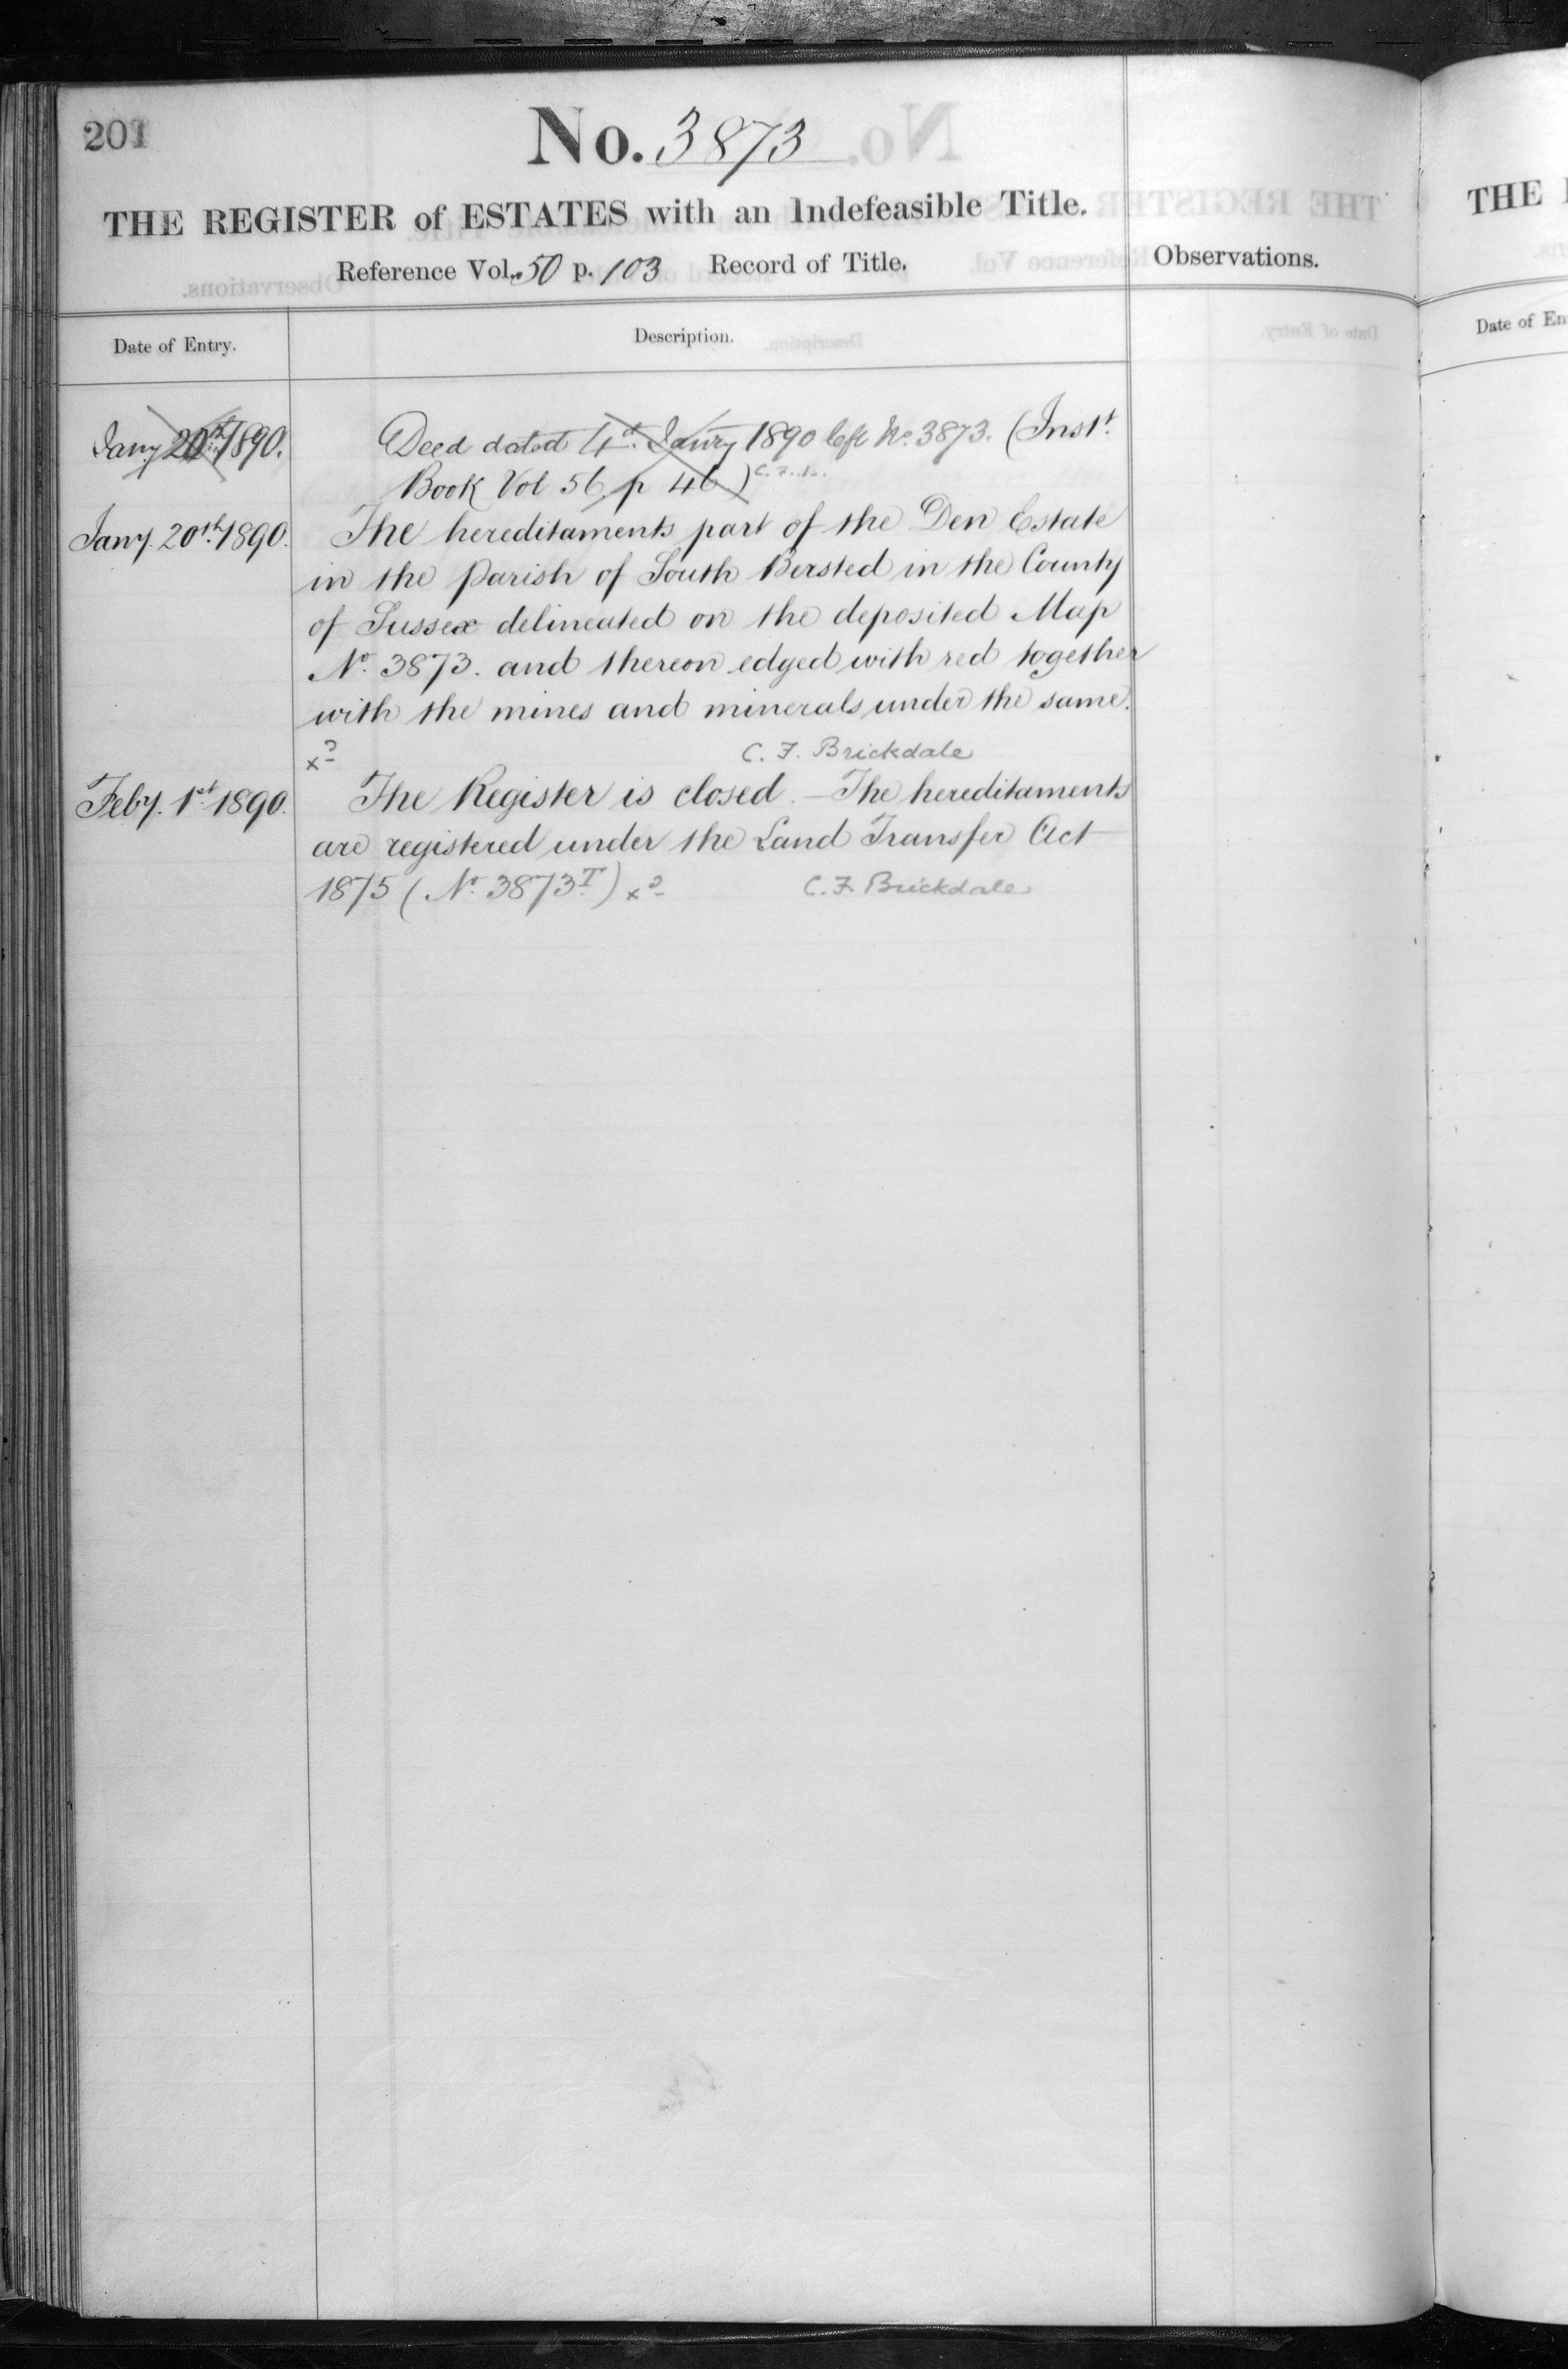 201
No. 3873
THE REGISTER of ESTATES with an Indefeasible Title.
Reference Vol. 50 p. 103 Record of Title.
Observations.
Date of Entry.
Description.
Jany 20th 1890.
Deed dated 4th Jany 1890 left No. 3873. (Inst.
Book Vol 56 p 46) C.F.B.
Jany. 20th 1890.
The hereditaments part of the Den Estate
in the Parish of South Bersted in the County
of Sussex delineated on the deposited Map
No. 3873. and thereon edged with red together
with the mines and minerals under the same.
C. F. Brickdale
Feby. 1st 1890.
The Register is closed. — The hereditaments
are registered under the Land Transfer Act
1875 (No. 3873T)
C. F. Brickdale
THE
Date of En